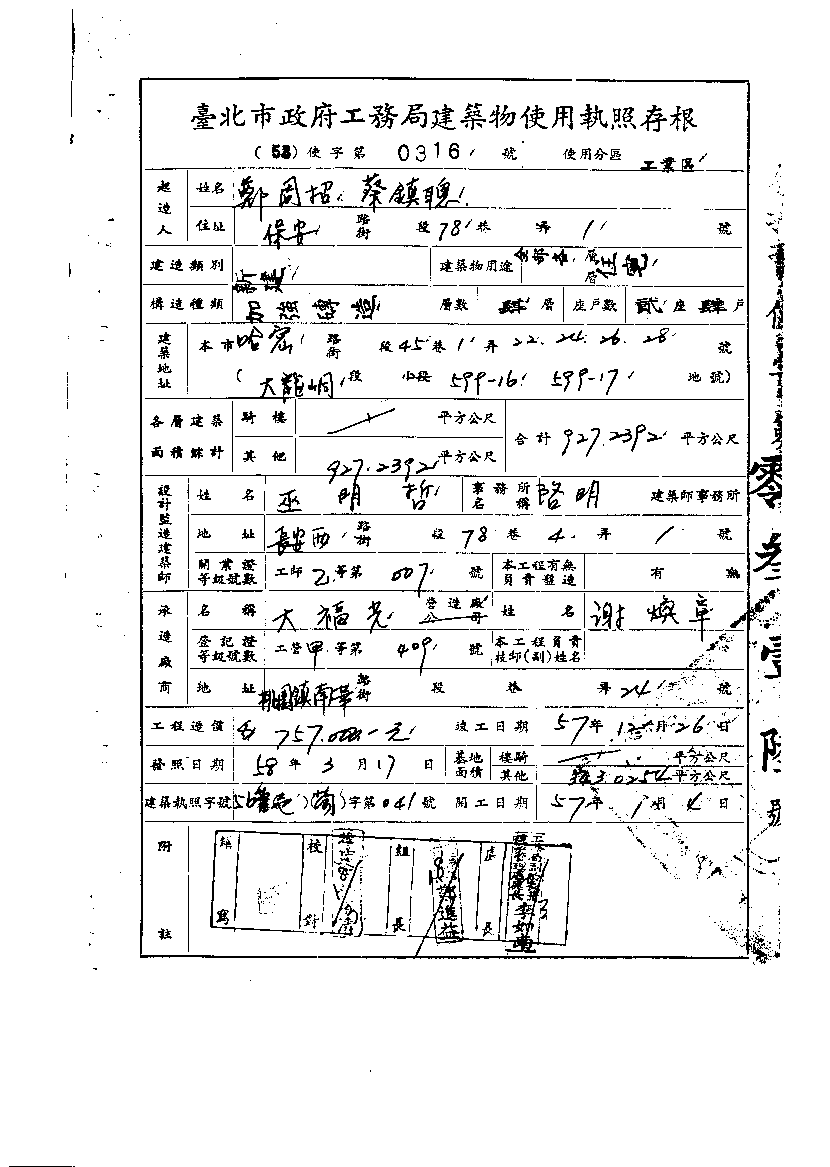 臺北市政府工務局建築物使用執照存根
(58)使字第 0316 號 使用分區 工業區
起造人 姓名 鄭固招 蔡鎮聰
住址 保安 路街 段 78 巷 弄 1 號
建造類別 新建 建築物用途 層 層 住宅
構造種類 加強磚造 層數 肆 層 座戶數 貳 座 肆 戶
建築地址 本市 哈密 路街 段 45 巷 1 弄 22.24.26.28 號
(大龍峒 段 小段 599-16 599-17 地號)
各層建築面積綜計 騎樓 平方公尺 合計 927.2392 平方公尺
其他 927.2392 平方公尺
設計監造建築師 姓名 巫明哲 事務所名稱 啓明 建築師事務所
地址 長安西 路街 段 78 巷 4 弄 1 號
開業證等級號數 工師 乙 等第 007 號 本工程有無負責督造 有 無
承造廠商 名稱 大福光 營造廠公司 姓名 謝煥章
登記證等級號數 工營 甲 等第 409 號 本工程負責技師(副)姓名
地址 桃園鎮南華 路街 段 巷 弄 24 號
工程造價 $ 757.000-元 竣工日期 57年 12 月 26 日
發照日期 58 年 3 月 17 日 基地面積 樓騎 平方公尺
其他 平方公尺
建築執照字號 字第 041 號 開工日期 57 年 1 月 4 日
附註 繕寫 校對 組長 處長
號